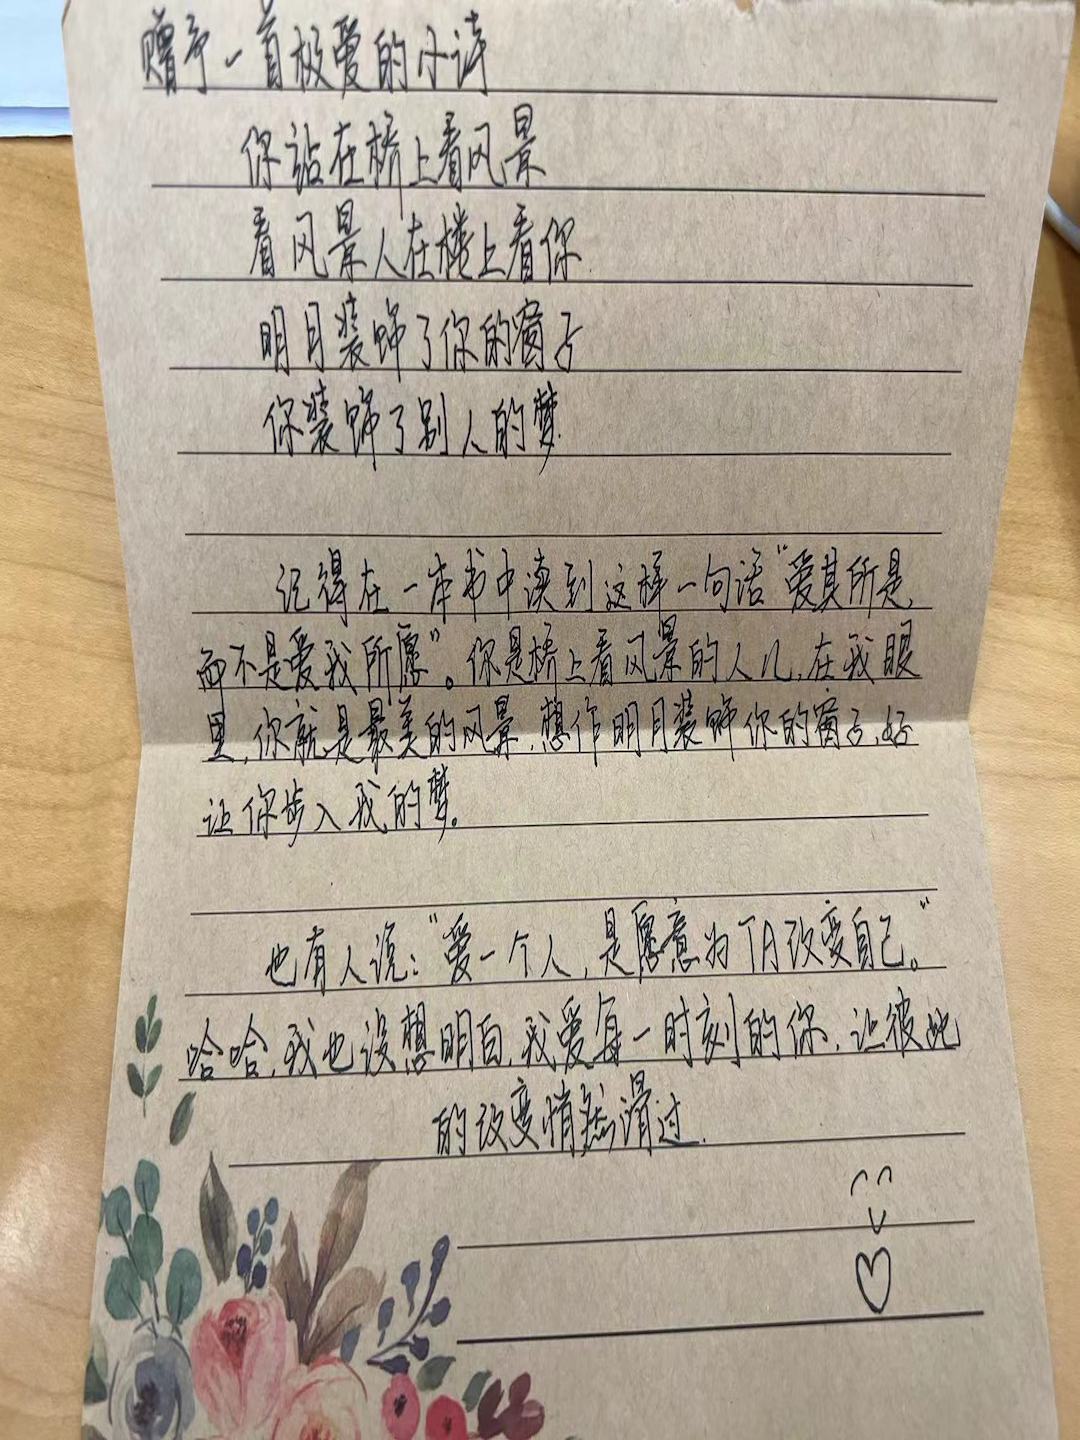 赠予一首极爱的小诗
你站在桥上看风景
看风景人在楼上看你
明月装饰了你的窗子
你装饰了别人的梦
记得在一本书中读到这样一句话“爱其所是,
而不是爱我所愿”。你是桥上看风景的人儿,在我眼
里,你就是最美的风景,想作明月装饰你的窗子,好
让你步入我的梦。
也有人说:“爱一个人,是愿意为TA改变自己。”
哈哈,我也没想明白,我爱每一时刻的你,让彼此
的改变悄然滑过.